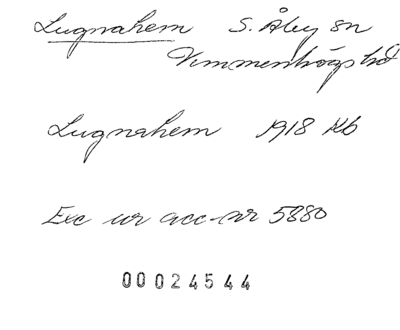 Lugnahem S. Åby sn
Vemmenhögs hd
Lugnahem 1918 Kb
Exc ur acc-nr 5880
00024544